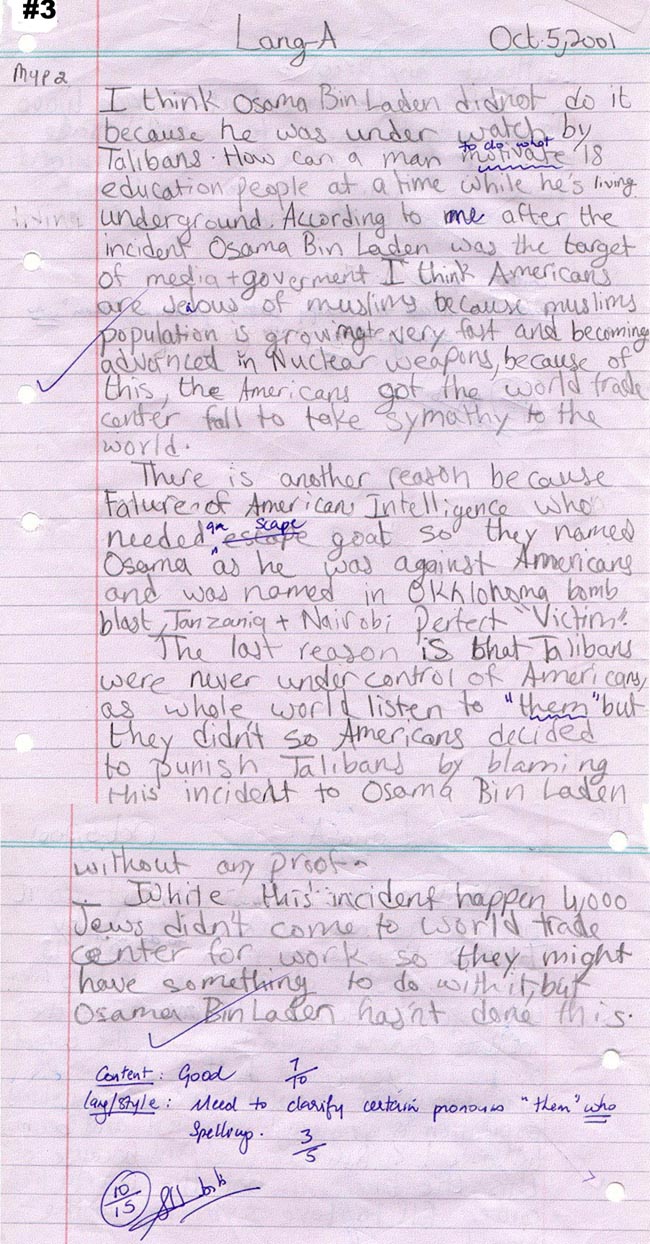 #3
Lang-A Oct. 5, 2001
MYP2
I think Osama Bin Laden didnot do it
because he was under watch by
to do what
Talibans. How can a man motivate 18
education people at a time while he's living
underground. According to me after the
incident Osama Bin Laden was the target
of media + goverment I think Americans
are jealous of muslims because muslims
population is growing very fast and becoming
advanced in Nuclear weapons, because of
this, the Americans got the world trade
center fall to take symathy to the
world.
There is another reason because
Falure of American Intelligence who
an scape
needed escape goat so they named
Osama as he was against Americans
and was named in Okhlohoma bomb
blast, Tanzania + Nairobi Perfect "Victim".
The last reason is that Talibans
were never under control of Americans,
as whole world listen to "them" but
they didn't so Americans decided
to punish Talibans by blaming
this incident to Osama Bin Laden
without any proof.
While this incident happen 4,000
Jews didn't come to world trade
center for work so they might
have something to do with it, but
Osama Bin Laden hasn't done this.
Content: Good 7/10
Lang/style: Need to clarify certain pronouns "them" who
Spelling. 3/5
10/15